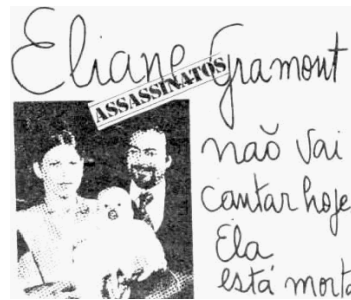 Eliane Gramont
ASSASSINATOS
não vai
cantar hoje
Ela
está morta